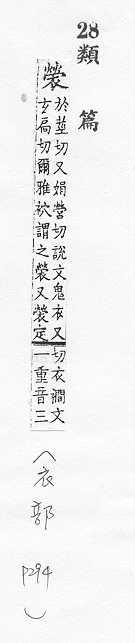 28
類篇
褮
於莖切又娟營切說文鬼衣又
玄扃切爾雅袕謂之褮又褮定
切衣澗文
一重音三
(衣部
P294
)